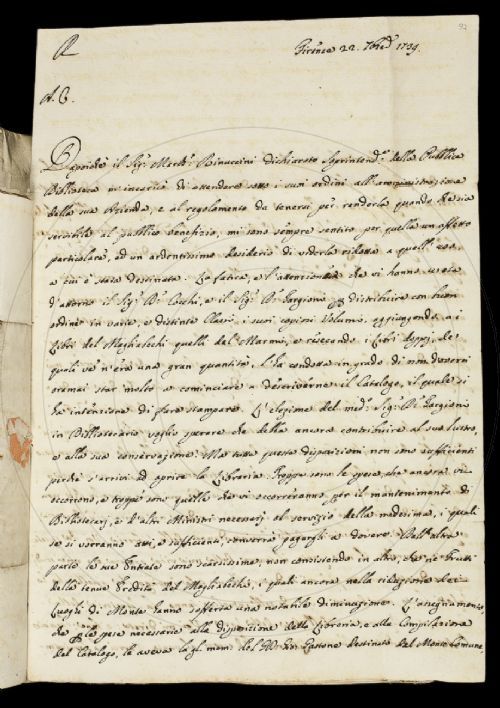 Firenze 22. 7bre 1739.
A. C.
Dopoichè il Sig.r March. Rinuccini dichiarato Soprintend.e della Pubblica
Biblioteca m'incaricò di attendere sotto i suoi ordini all'amministrazione
della sua Azienda, e al regolamento da tenersi per renderla quando che sia
servibile al pubblico benefizio, mi sono sempre sentito per quella un affetto
particolare, ed un ardentissimo desiderio di vederla ridotta a quell'uso,
a cui è stata destinata. La fatica, e l'attenzione che vi hanno usata
d'attorno il Sig. D. Cocchi, e il Sig. D. Targioni distribuire con buon
ordine in varie, e distinte Classi i suoi copiosi Volumi, aggiungendo a i
Libri del Magliabechi quelli del Marmi, e i Libri doppj, de
quali ve n'era una gran quantità, l'ha condotta in grado di non doversi
oramai star molto a cominciare a descriverne il Catalogo, il quale si
ha intenzione di fare stampare. L'elezione del med. Sig. D. Targioni
in Bibliotecario voglio sperare che debba ancora contribuire al suo lustro,
e alla sua conservazione. Ma tutte queste disposizioni non sono sufficienti
perchè s'arrivi ad aprire la Libreria. Troppe sono le spese, che ancora vi
occorrono, e troppe sono quelle che vi occorreranno per il mantenimento di
Bibliotecarj, e d'altri Ministri necessarj al servizio della medesima, i quali
se si vorranno atti, e sufficienti, converrà pagargli a dovere. Dall'altra
parte le sue Entrate sono scarsissime, non consistendo in altro, che ne' frutti
della tenue Eredità del Magliabechi, i quali ancora nella riduzione dei
Luoghi di Monte hanno sofferta una notabile diminuzione. L'assegnamento,
che le spese necessarie alla disposizione della Libreria, e alla Compilazione
del Catalogo, le aveva la gl. mem. del Gio. Gastone destinato dal Monte Comune,